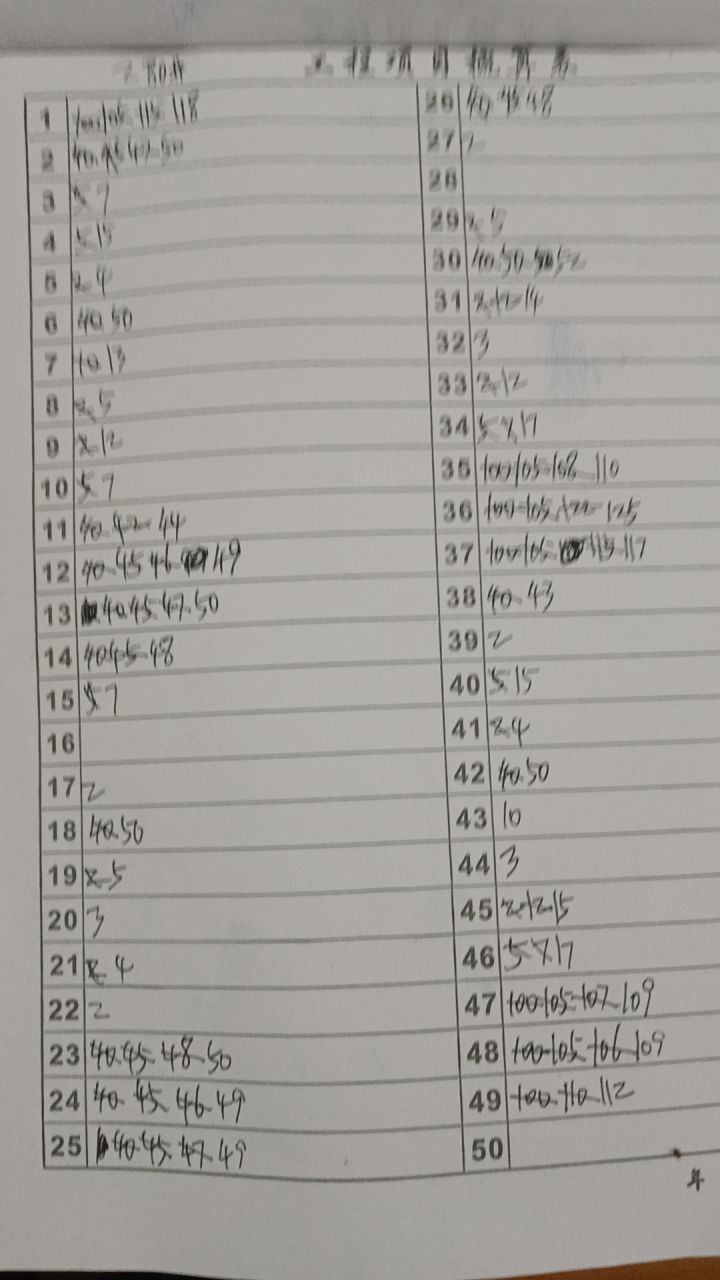 工程项目概算表
1 100.105.115.118
2 40.45.47.50
3 5.7
4 5.15
5 2.4
6 40.50
7 10.13
8 2.5
9 2.12
10 5.7
11 40.42.44
12 40.45.46.49
13 40.45.47.50
14 40.45.48
15 5.7
16
17 2
18 40.50
19 2.5
20 3
21 2.4
22 2
23 40.45.48.50
24 40.45.46.49
25 40.45.47.49
26 40.45.48
27 2
28
29 2.5
30 40.50.52
31 2.12.14
32 3
33 2.12
34 5.7.17
35 100.105.108.110
36 100.105.122.125
37 100.105.115.117
38 40.43
39 2
40 5.15
41 2.4
42 40.50
43 10
44 3
45 2.12.15
46 5.7.17
47 100.105.107.109
48 100.105.106.109
49 100.110.112
50
年